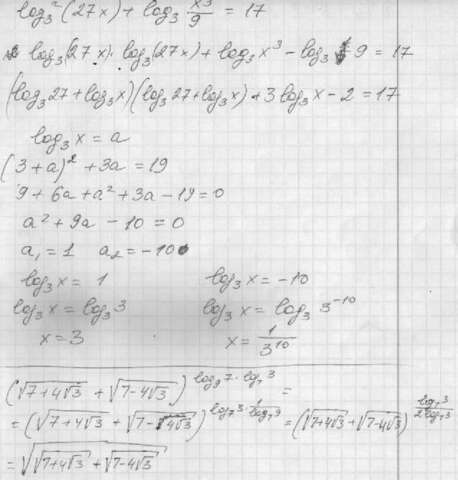 log₃²(27x) + log₃ x³/9 = 17
log₃(27x)·log₃(27x) + log₃x³ − log₃ 9 = 17
(log₃27 + log₃x)(log₃27 + log₃x) + 3log₃x − 2 = 17
log₃x = a
(3+a)² + 3a = 19
9 + 6a + a² + 3a − 19 = 0
a² + 9a − 10 = 0
a₁ = 1 a₂ = −10
log₃x = 1 log₃x = −10
log₃x = log₃3 log₃x = log₃3⁻¹⁰
x = 3 x = 1/3¹⁰
(√(7+4√3) + √(7−4√3))^(log₉7·log₇3) =
= (√(7+4√3) + √(7−4√3))^(log₇3·1/log₇9) = (√(7+4√3) + √(7−4√3))^(log₇3/2log₇3)
= √(√(7+4√3) + √(7−4√3))